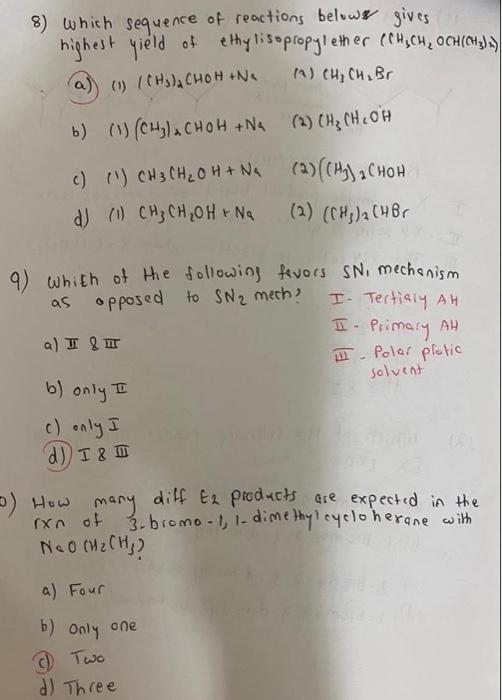 8) Which sequence of reactions below gives
highest yield of ethylisopropylether (CH3CH2OCH(CH3)2)
a) (1) (CH3)2CHOH + Na (2) CH3CH2Br
b) (1) (CH3)2CHOH + Na (2) CH3CH2OH
c) (1) CH3CH2OH + Na (2) (CH3)2CHOH
d) (1) CH3CH2OH + Na (2) (CH3)2CHBr
9) Which of the following favors SN1 mechanism
as opposed to SN2 mech?
I - Tertiary AH
II - Primary AH
III - Polar protic
solvent
a) II & III
b) only II
c) only I
d) I & III
0) How many diff E2 products are expected in the
rxn of 3-bromo-1,1-dimethylcyclohexane with
NaOCH2CH3?
a) Four
b) Only one
c) Two
d) Three